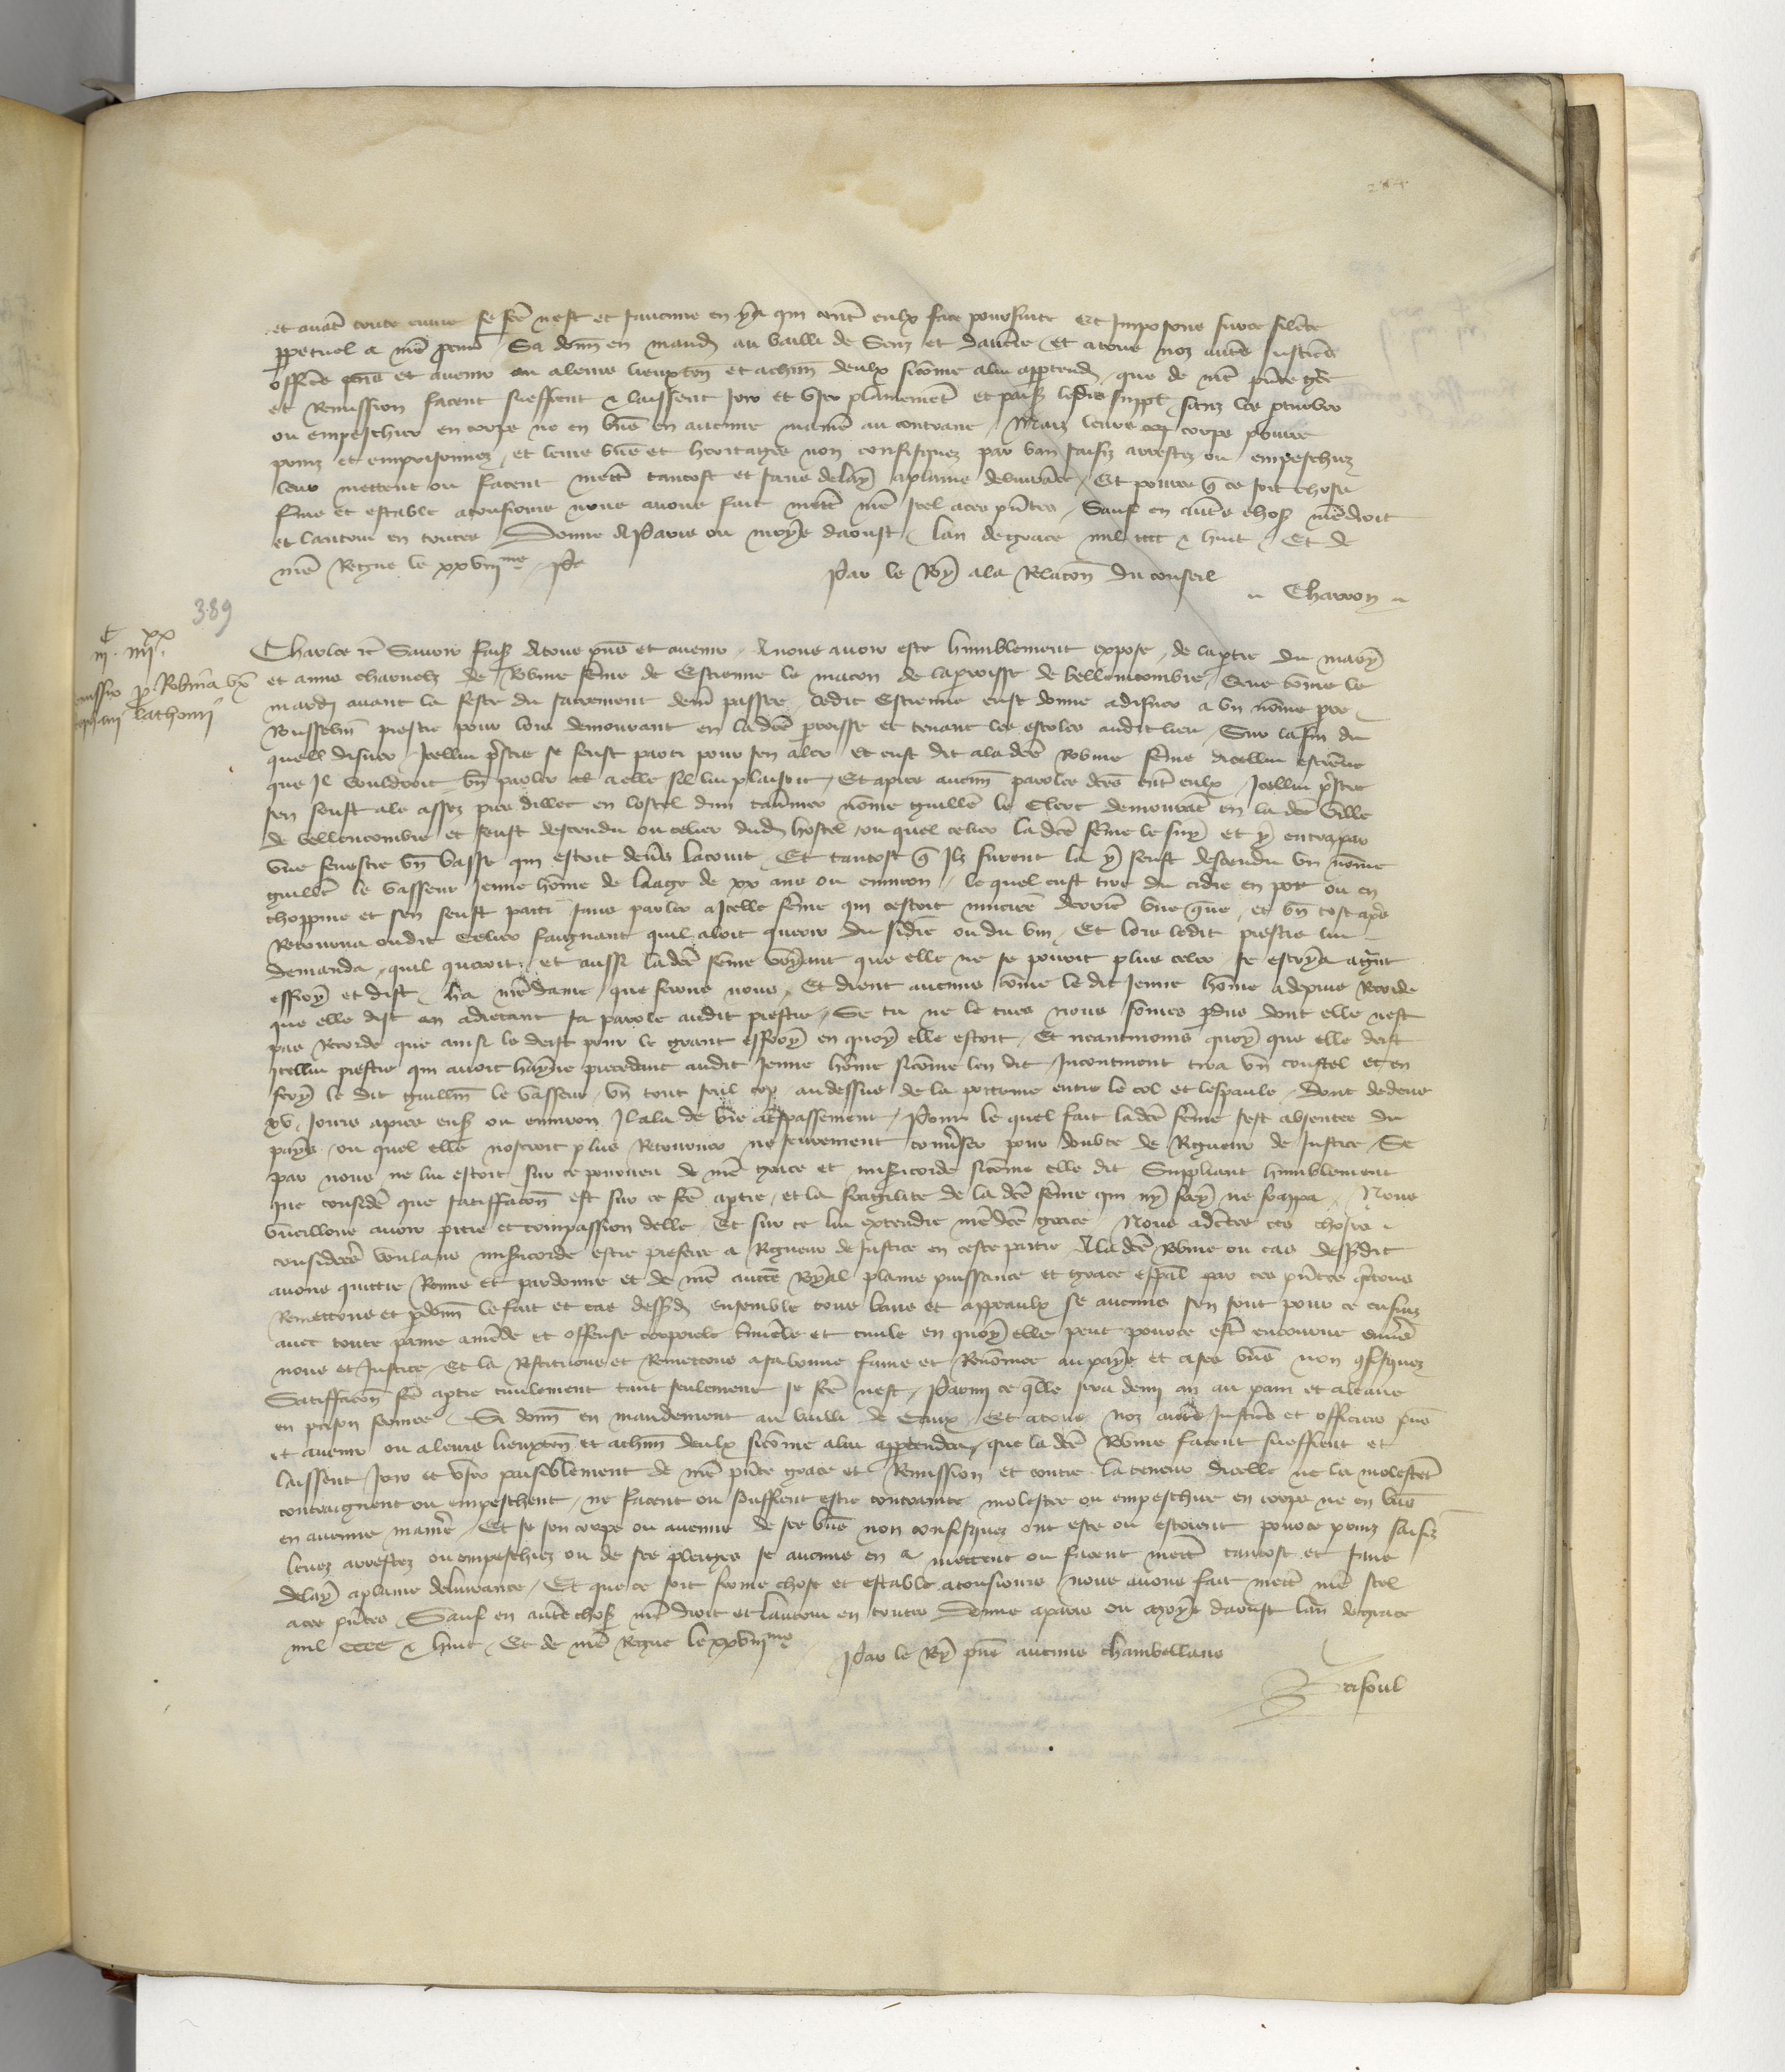 et avant toute euvre se fcē nest et saucune en ya qui contre eulx face poursuite Et Imposons sur ce silēce
ppetuel a nrē procur Si donn en mand au bailli de Senz et dauc̄rre Et a tous noz autres Justic̄s
offic̄rs pns et avenir ou a leurs lieuxten et achun deulx sicōme a lui apptendr que de nrē pn̄te grāce
et Remission facent sueffrent & laissent Joir et user plainement et paisib lesdis supplians sanz les pturber
ou empeschier en corps ne en biens en aucune manie au contraire Maiz leurs corps pource
prinz et emprisonnez et leurs biens et heritages non confisquez par ban saisiz arrestez ou empeschiez
leur mettent ou facent mettre tantost et sans delay a plaine delivrāce Et pource q̄ ce soit chose
ferme et estable a tousiours nous avons fait mettre nrē scel a ces pn̄tes Sauf en autres choses nrē droit
et lautrui en toutes Donne a Paris ou moys daoust Lan de grace mil cccc & huit Et de
nrē Regne le xxviijme
Par le Roy a la Relacon du conseil
Charron
389
iijc iiijxx
Remissio p Robina uxor
stephani lathomi
Charles etc Savoir faisōs a tous pns et avenir A nous avoir este humblement expose de la ptie du mary
et amis charnelz de Robine fēme de Estienne le macon de la parroisse de bellencombre Que cōme le
mardi avant la feste du sacrement derrē passee ledit Estienne eust donne a disner a un nōme pierre
Rousselin prestre pour lors demourant en la dcē parroisse et tenant les escoles audit lieu Sur la fin du
quel disner Icellui prestre se feust parti pour sen aler et eust dit a la dcē Robine fēme dicellui estiēne
que Il vouldroit bn̄ parler a elle sil lui plaisoit Et apres aucun paroles dcēs entre eulx Icellui prestre
sen feust ale assez pres dillec en lostel dun tavernier nōme guillē le Clerc demourāt en la dcē ville
de bellencombre et feust descendu ou celier dudit hostel ou quel celier la dcē fēme le suy et y entra par
une fenestre bn̄ basse qui estoit devers la court Et tantost q̄ Ilz furent la y feust descendu un nōme
guillē le vasseur Jeune hōme de laage de xx ans ou environ le quel eust tire du cidre en pot ou en
choppine et sen feust parti sans parler a Icelle fēme qui cestoit muciee derriere une queue et bn̄ tost apres
Retourna oudit Celier faignant quil aloit querir du sidre ou du vin Et lors ledit prestre lui
demanda quil queroit et aussi la dcē fēme voyant que elle ne se povoit plus celer se escrya a grant
effroy et dist ha nrē dame que ferons nous Et dient aucuns cōme le dit Jeune hōme a depuis Recorde
que elle dist en adrecant sa parole audit prestre Se tu ne le tues nous sōmes pdus dont elle nest
pas Recorde que ainsi le deist pour le grant effroy en quoy elle estoit Et neantmoins quoy que elle deist
Icellui prestre qui avoit hayne precedant audit Jeune hōme sicōme len dit Incontinent tira un coustel et en
fery le dit guillm̄ le vasseur un tout seul cop au dessus de la poictrine entre le col et lespaule Dont dedens
xv Jours apres ens ou environ Il ala de vie a trespassement Pour le quel fait la dcē fēme sest absentee du
pays ou quel elle noseroit plus Retourner ne seurement converser pour doubte de Rigueur de Justice Se
par nous ne lui estoit sur ce pourveu de nrē grace et misericorde sicōme elle dit Suppliant humblement
que considere que satiffacon est sur ce fcē a ptie et la fragilite de la dcē fēme qui ny fery ne frappa Nous
vueillons avoir pitie et compassion delle Et sur ce lui extendre nrē dcē grace Nous adctees ces choses
considerees voulans misericorde estre preferee a Rigueur de Justice en ceste partie A la dcē Robine ou cas dessdit
avons quitte Remis et pardonne et de nrē auctē Royal plaine puissance et grace espāl par ces pn̄tes quittons
Remettons et pdonn̄ le fait et cas dessd ensemble tous bans et appeaulx se aucuns sen sont pour ce ensuiz
avec toute paine amēde et offense corporele criminele et civile en quoy elle peut pource estre encourue envers
nous et Justice Et la Restituons et Remettons a sa bonne fame et Renōmee au pays et a ses biens non confisquez
Satiffacon fcē a ptie civilement tant seulement se fcē nest Parmi ce q̄lle sera demi an au pain et a leaue
en prison fermee Si donn̄ en mandement au bailli de Caux Et a tous noz autres Justic̄s et officiers pns
et avenir ou a leurs lieuxten et achun deulx sicōme a lui apptendra que la dcē Robine facent sueffrent et
laissent Joir et user paisiblement de nrē pn̄te grace et Remission et contre la teneur dicelle ne la molestent
contraignent ou empeschent ne facent ou seuffrent estre contrainte molestee ou empeschiee en corps ne en biens
en aucune maniere Et se son corps ou aucuns de ses biens non confisquez ont este ou estoient pource prinz saisiz
levez arrestez ou empeschiez ou de ses pleiges se aucuns en a mettent ou facent mettre tantost et sans
delay a plaine delivrance Et que ce soit ferme chose et estable a tousiours nous avons fait mettre nrē scel
a ces pn̄tes Sauf en autre chose nrē droit et lautrui en toutes Donne a paris ou moys daoust lan de grace
mil cccc & huit Et de nrē Regne le xxviijme
Par le Roy pns aucuns chambellans